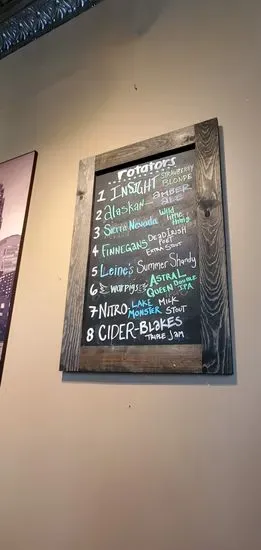 rotators
1 INSIGHT STRAWBERRY BLONDE
2 alaskan - AMBER ALE
3 Sierra Nevada Wild little thing
4 FINNEGANS DEAD IRISH POET EXTRA STOUT
5 Leine's Summer Shandy
6 WARPIGS ASTRAL QUEEN DOUBLE IPA
7 NITRO - LAKE MONSTER MILK STOUT
8 CIDER - BLAKES TRIPLE JAM